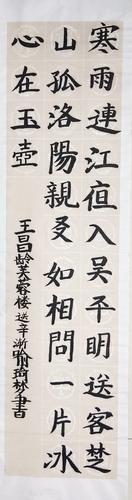 寒雨連江夜入吴平明送客楚
山孤洛陽親友如相問一片冰
心在玉壺
王昌龄芙蓉楼送辛渐喻琦林書